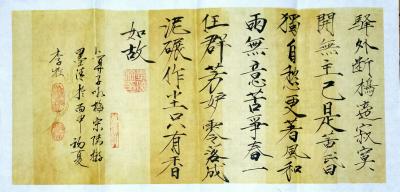 驛外断橋邊寂寞
開無主已是黄昏
獨自愁更著風和
雨無意苦爭春一
任群芳妒零落成
泥碾作尘只有香
如故
卜算子咏梅宋陸游
於丙申初夏
李